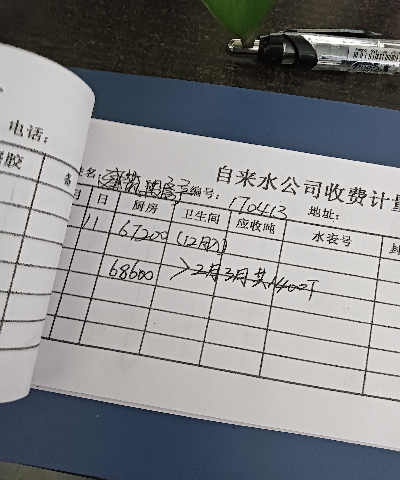 自来水公司收费计量
电话:
名: 编号: 170413 地址:
备
月 日 厨房 卫生间 应收吨 水表号
11 67200 (12月)
68600 >2月3月共1400T